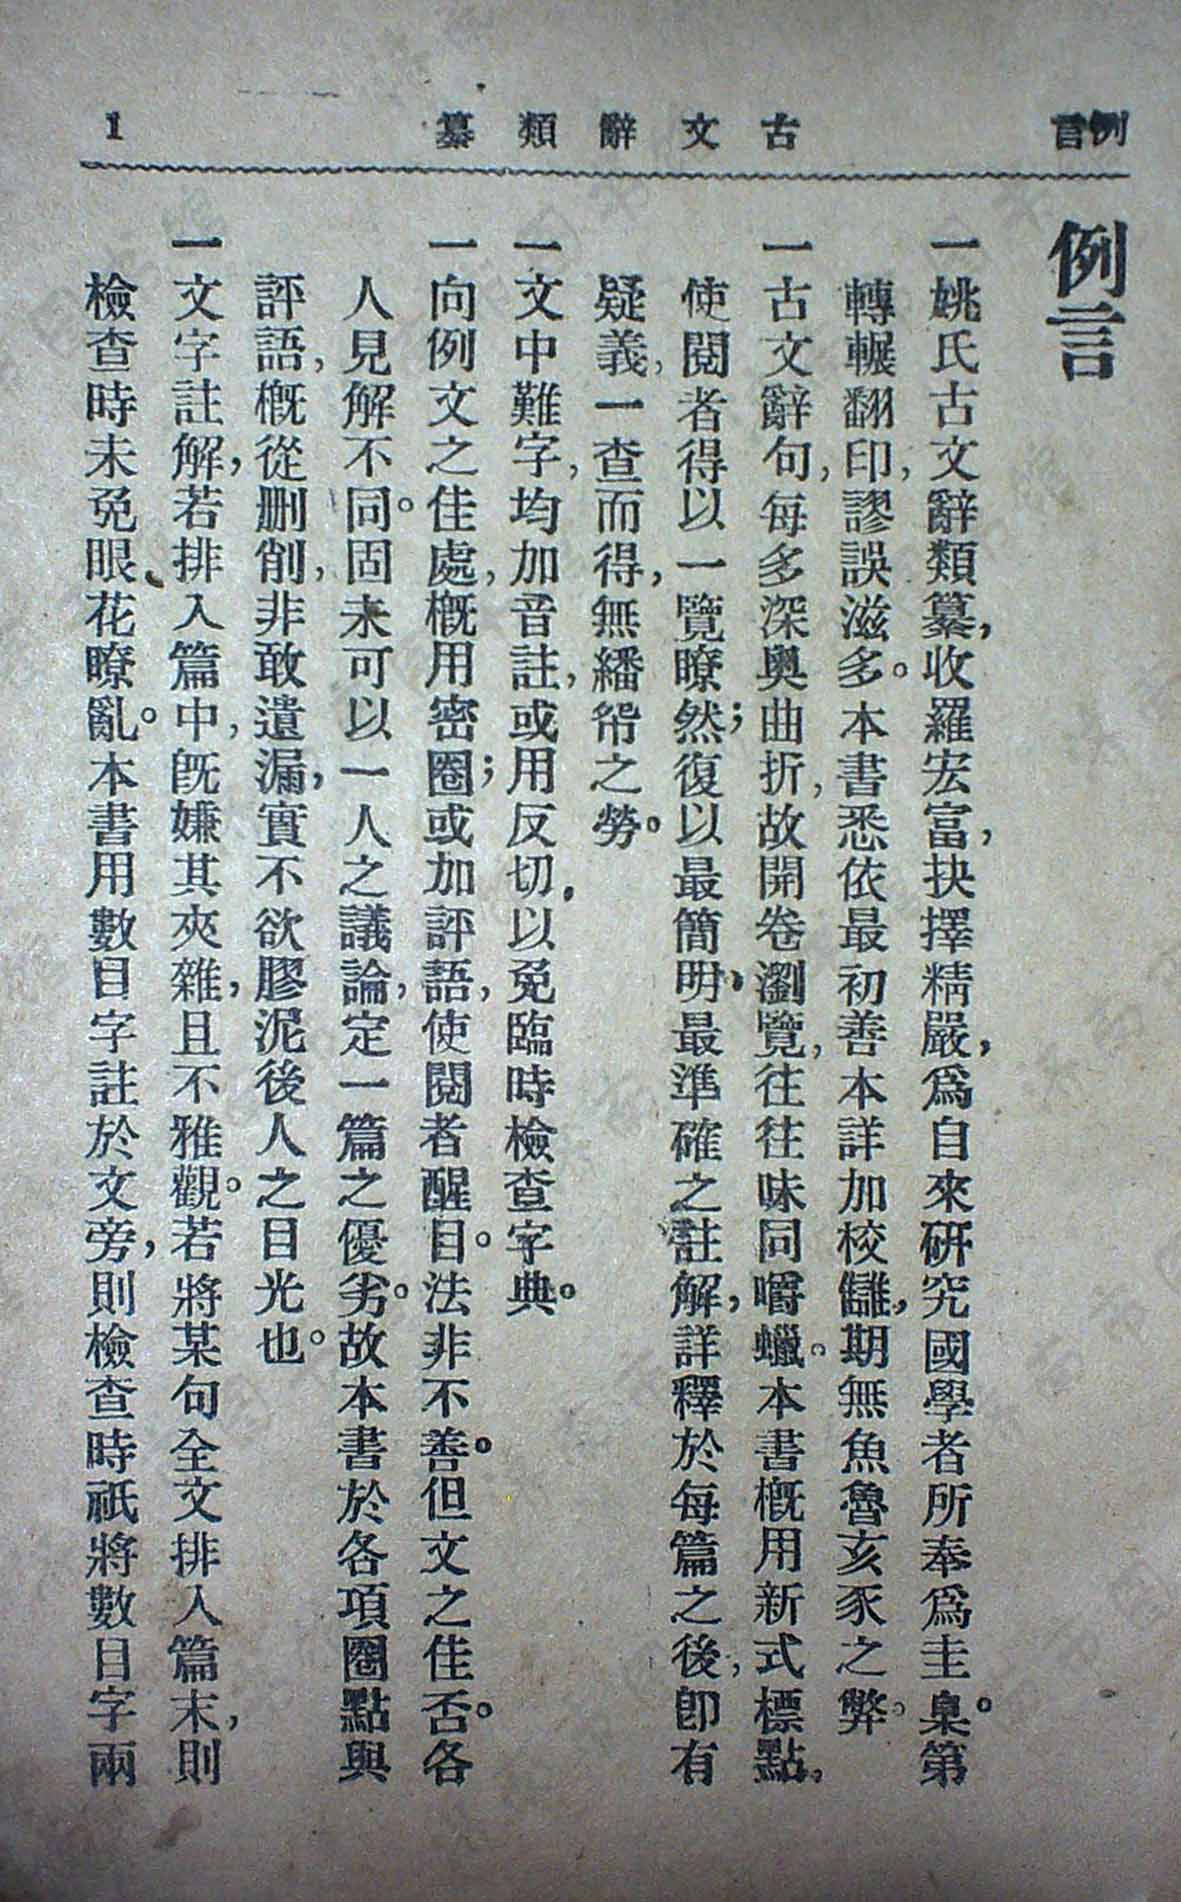 例言
古文辭類纂
1
例言
一姚氏古文辭類纂，收羅宏富，抉擇精嚴，爲自來研究國學者所奉爲圭臬。第
轉輾翻印，謬誤滋多。本書悉依最初善本詳加校讎，期無魚魯亥豕之弊。
一古文辭句，每多深奥曲折，故開卷瀏覽，往往味同嚼蠟。本書概用新式標點，
使閱者得以一覽瞭然；復以最簡明，最準確之註解，詳釋於每篇之後，卽有
疑義，一查而得，無繙帋之勞。
一文中難字，均加音註，或用反切，以免臨時檢查字典。
一向例文之佳處，概用密圈；或加評語，使閱者醒目。法非不善。但文之佳否。各
人見解不同。固未可以一人之議論，定一篇之優劣。故本書於各項圈點與
評語，概從删削，非敢遺漏，實不欲膠泥後人之目光也。
一文字註解，若排入篇中，旣嫌其夾雜，且不雅觀。若將某句全文排入篇末，則
檢查時未免眼花瞭亂。本書用數目字註於文旁，則檢查時祇將數目字兩